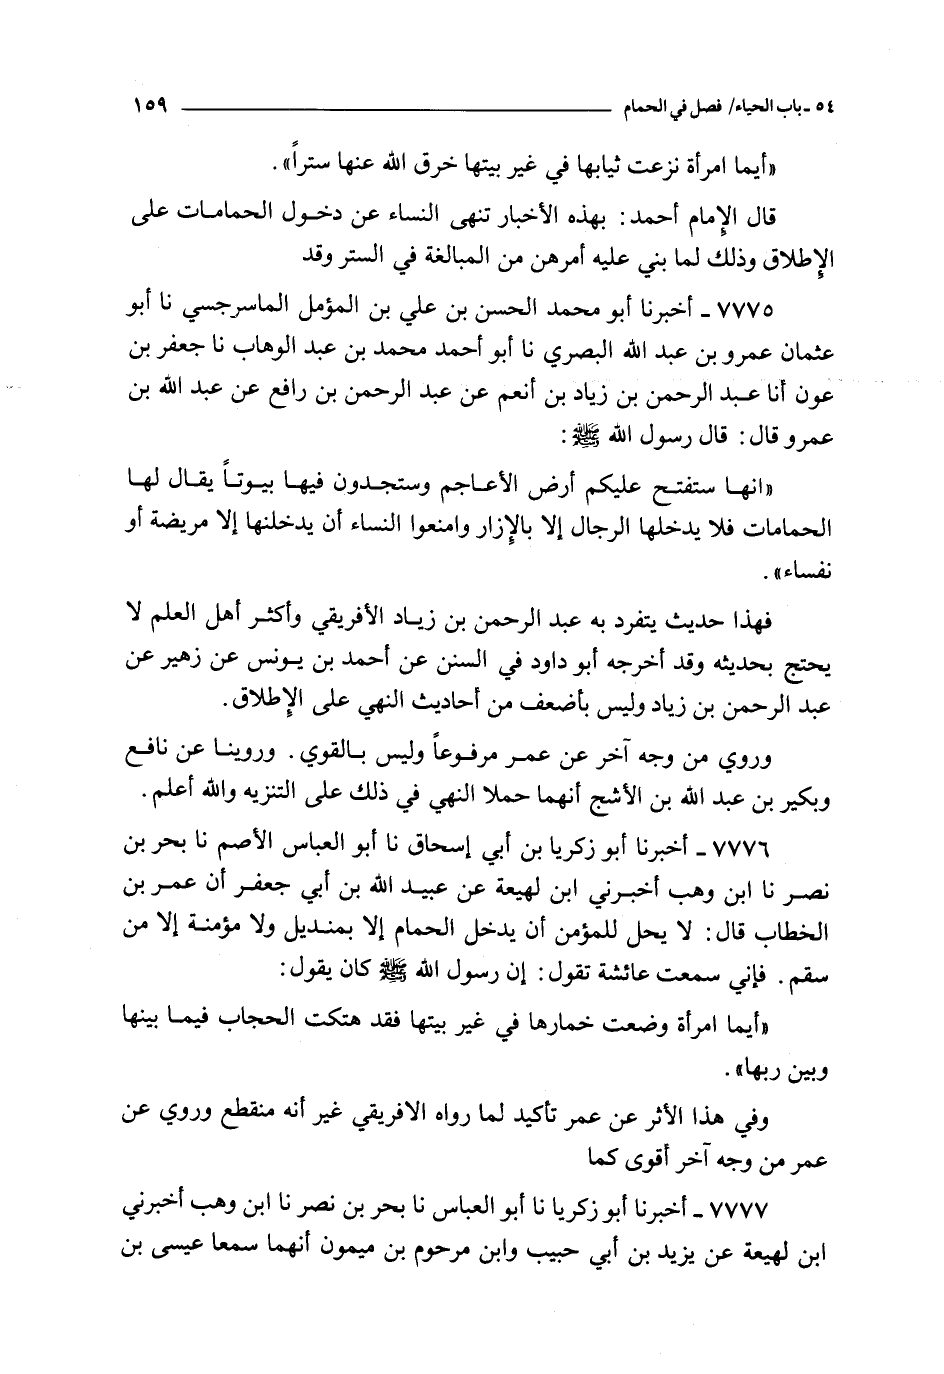 ٥٤ ـ باب الحياء/ فصل في الحمام ١٥٩
«أيما امرأة نزعت ثيابها في غير بيتها خرق الله عنها ستراً».
قال الإمام أحمد: بهذه الأخبار تنهى النساء عن دخول الحمامات على
الإطلاق وذلك لما بني عليه أمرهن من المبالغة في الستر وقد
٧٧٧٥ ـ أخبرنا أبو محمد الحسن بن علي بن المؤمل الماسرجسي نا أبو
عثمان عمرو بن عبد الله البصري نا أبو أحمد محمد بن عبد الوهاب نا جعفر بن
عون أنا عبد الرحمن بن زياد بن أنعم عن عبد الرحمن بن رافع عن عبد الله بن
عمرو قال: قال رسول الله ﷺ:
«انها ستفتح عليكم أرض الأعاجم وستجدون فيها بيوتاً يقال لها
الحمامات فلا يدخلها الرجال إلا بالإزار وامنعوا النساء أن يدخلنها إلا مريضة أو
نفساء».
فهذا حديث يتفرد به عبد الرحمن بن زياد الأفريقي وأكثر أهل العلم لا
يحتج بحديثه وقد أخرجه أبو داود في السنن عن أحمد بن يونس عن زهير عن
عبد الرحمن بن زياد وليس بأضعف من أحاديث النهي على الإطلاق.
وروي من وجه آخر عن عمر مرفوعاً وليس بالقوي. وروينا عن نافع
وبكير بن عبد الله بن الأشج أنهما حملا النهي في ذلك على التنزيه والله أعلم.
٧٧٧٦ ـ أخبرنا أبو زكريا بن أبي إسحاق نا أبو العباس الأصم نا بحر بن
نصر نا ابن وهب أخبرني ابن لهيعة عن عبيد الله بن أبي جعفر أن عمر بن
الخطاب قال: لا يحل للمؤمن أن يدخل الحمام إلا بمنديل ولا مؤمنة إلا من
سقم. فإني سمعت عائشة تقول: إن رسول الله ﷺ كان يقول:
«أيما امرأة وضعت خمارها في غير بيتها فقد هتكت الحجاب فيما بينها
وبين ربها».
وفي هذا الأثر عن عمر تأكيد لما رواه الافريقي غير أنه منقطع وروي عن
عمر من وجه آخر أقوى كما
٧٧٧٧ ـ أخبرنا أبو زكريا نا أبو العباس نا بحر بن نصر نا ابن وهب أخبرني
ابن لهيعة عن يزيد بن أبي حبيب وابن مرحوم بن ميمون أنهما سمعا عيسى بن